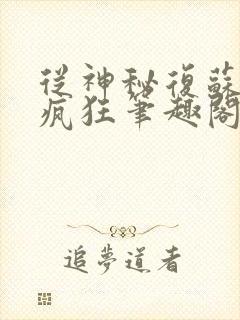 從神秘復蘇
瘋狂筆趣閣
追夢道者